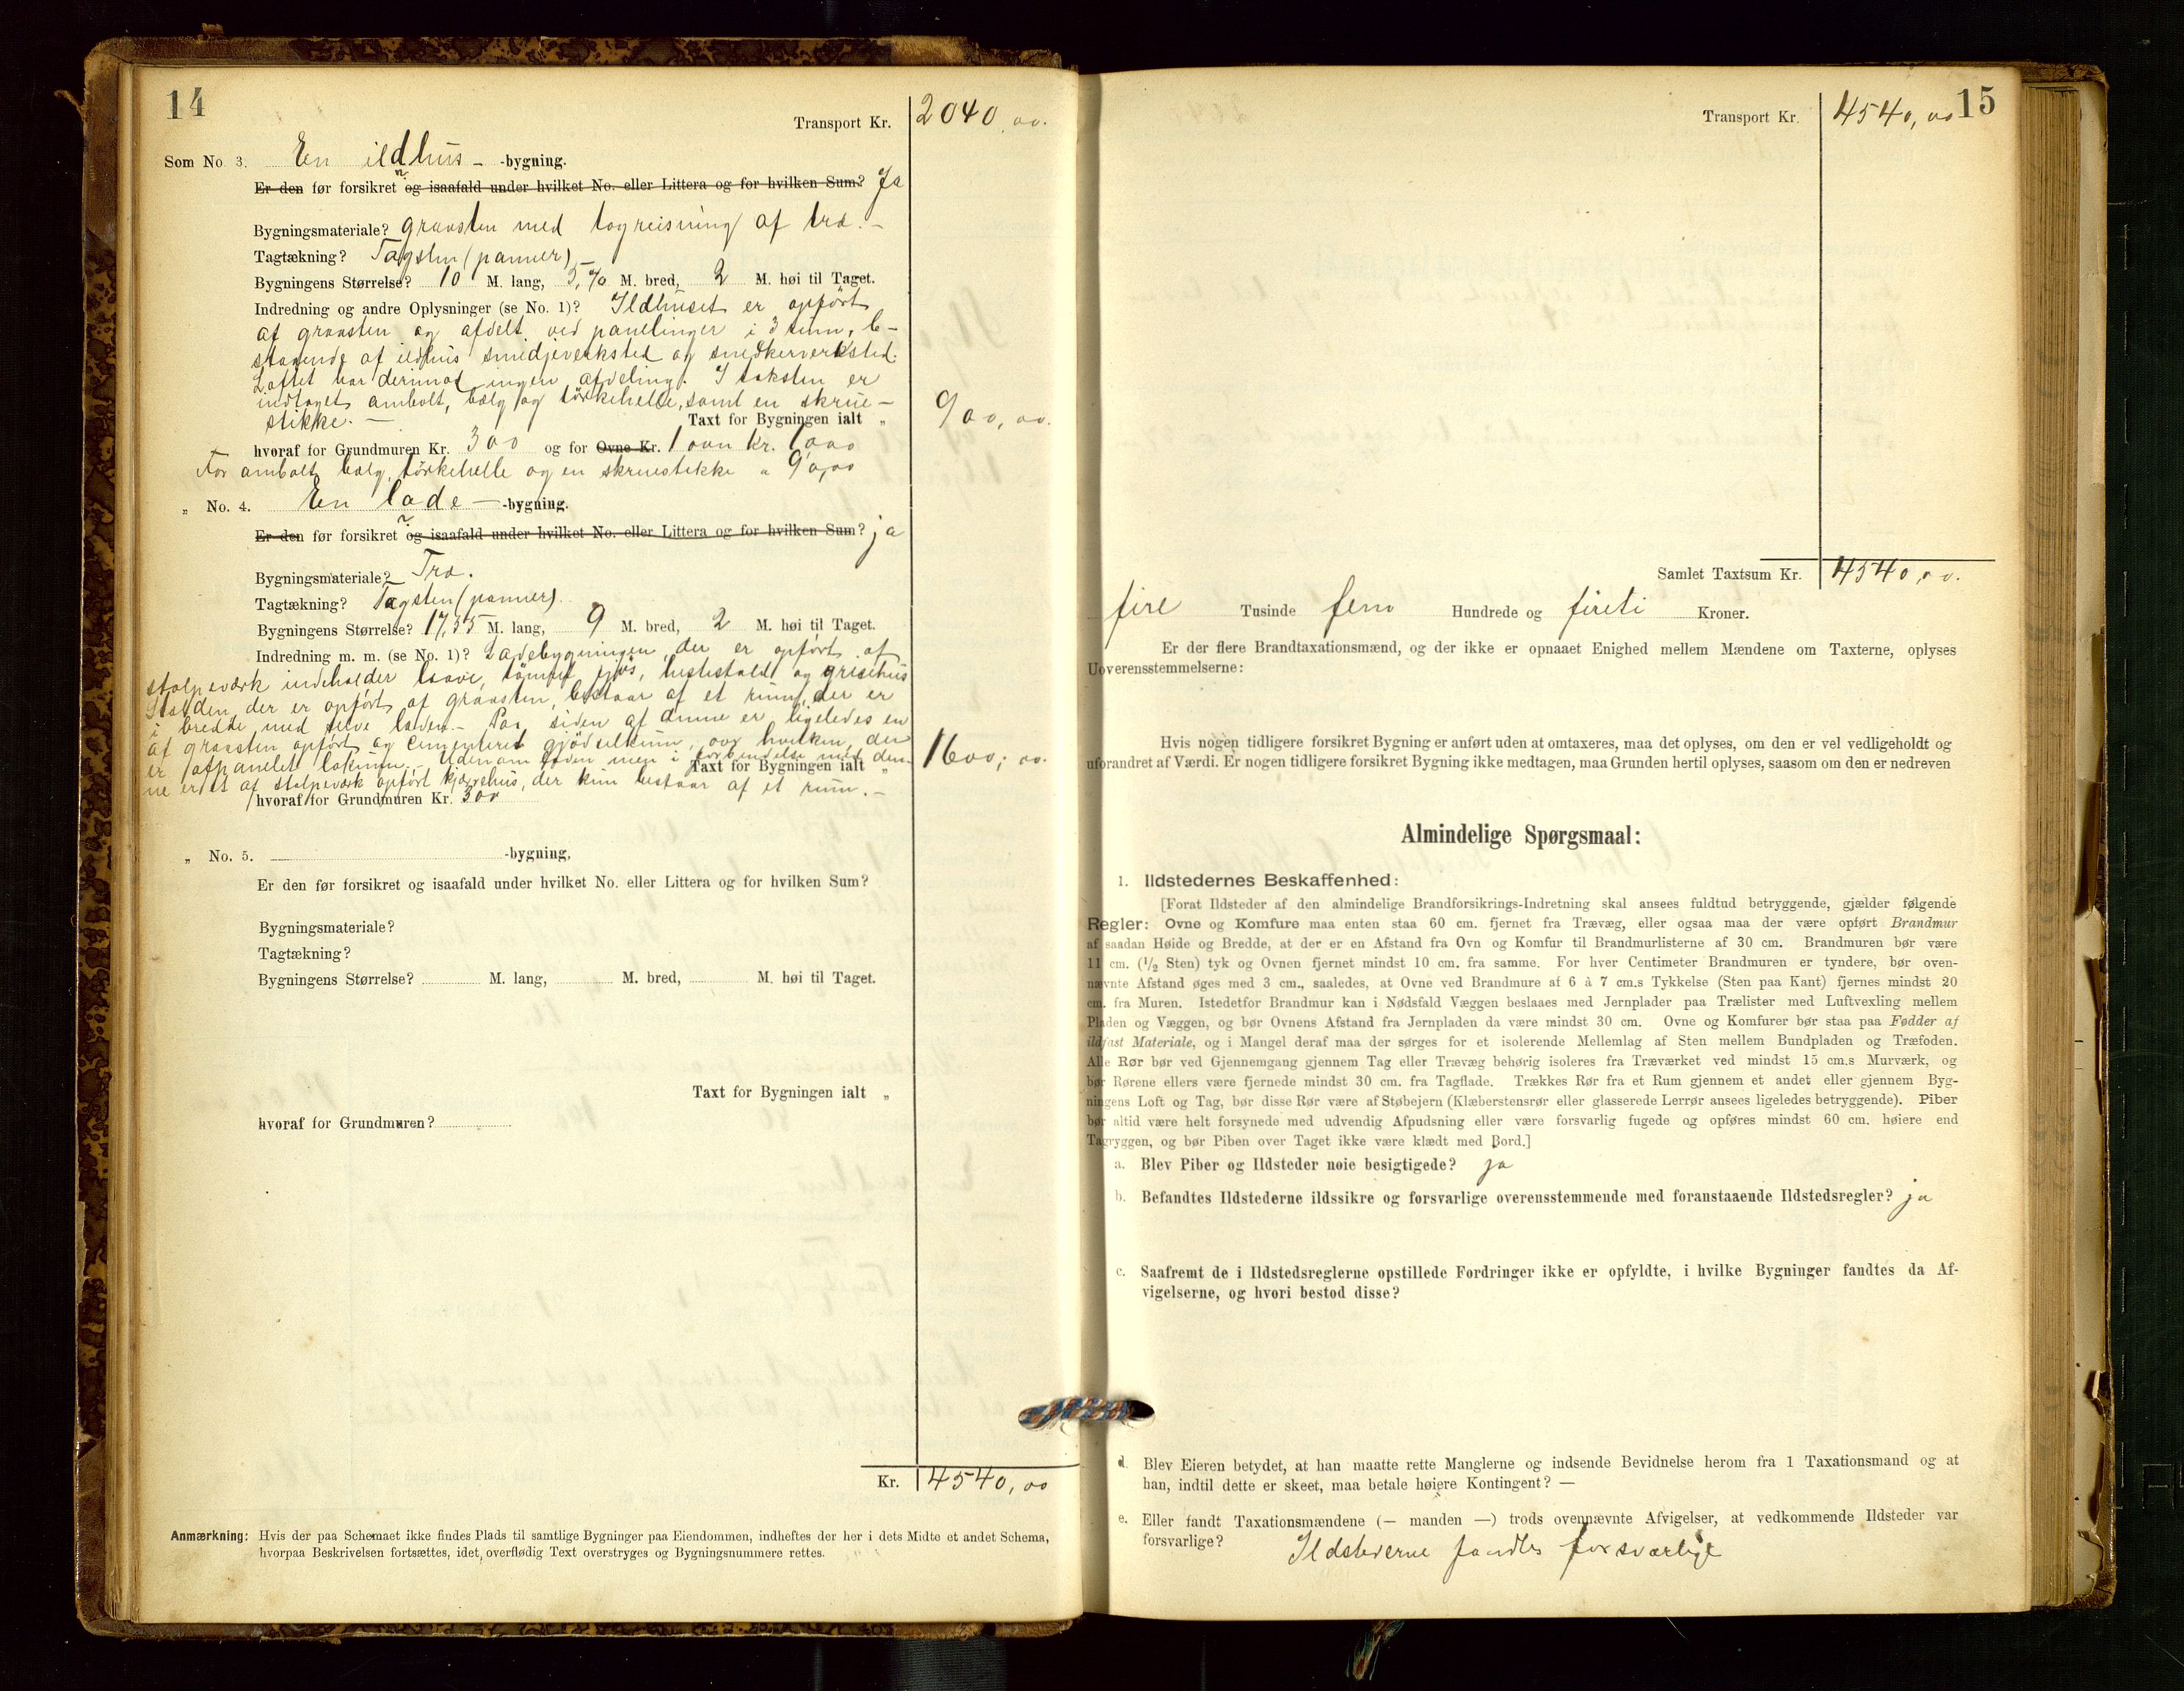 14
Transport Kr. 2040,00.
Som No. 3. En ildhus - -bygning.
Er den før forsikret og isaafald under hvilket No. eller Littera og for hvilken Sum? Ja
Bygningsmateriale? graasten med tagreisning af træ. -
Tagtækning? Tagsten (panner) -
Bygningens Størrelse? 10 M. lang, 5,70 M. bred, 2 M. høi til Taget.
Indredning og andre Oplysninger (se No. 1)? Ildhuset er opført
af graasten og afdelt ved panelinger i 3 rum, be-
staaende af ildhus smidjeverksted og snedkerverksted.
Loftet har derimod ingen afdeling. I taksten er
indtaget ambolt, bælg og törkehelle, samt en skrue-
stikke. -
Taxt for Bygningen ialt „ 900,00.
hvoraf for Grundmuren Kr. 300 og for Ovne Kr. 1 ovn Kr.
For ambolt, bælg, törkehelle og en skruestikke " 90,00
„ No. 4. En lade - -bygning.
Er den før forsikret og isaafald under hvilket No. eller Littera og for hvilken Sum? ja
Bygningsmateriale? Træ.
Tagtækning? Tagsten (panner)
Bygningens Størrelse? 17,55 M. lang, 9 M. bred, 2 M. høi til Taget.
Indredning m. m. (se No. 1)? Ladebygningen, der er opført af
stolpeværk indeholder laave, tømret fjøs, hestestald og grisehus
der er opført af graasten, bestaar af et rum, der er
i bredde med selve laden. - Paa siden af denne er ligeledes en
af graasten opført og cementeret gjødselkum, over hvilken der
er afpanelet - Udenom laden men i forbindelse med den-
ne er et af stolpeværk opført kjærrehus, der kun bestaar af et rum. -
Taxt for Bygningen ialt „ 1600,00.
hvoraf for Grundmuren Kr. 300
„ No. 5. -bygning,
Er den før forsikret og isaafald under hvilket No. eller Littera og for hvilken Sum?
Bygningsmateriale?
Tagtækning?
Bygningens Størrelse? M. lang, M. bred, M. høi til Taget.
Taxt for Bygningen ialt „
hvoraf for Grundmuren?
Kr. 4540,00
Anmærkning: Hvis der paa Schemaet ikke findes Plads til samtlige Bygninger paa Eiendommen, indheftes der her i dets Midte et andet Schema,
hvorpaa Beskrivelsen fortsættes, idet overflødig Text overstryges og Bygningsnummere rettes.
15
Transport Kr. 4540,00
Samlet Taxtsum Kr. 4540,00.
fire Tusinde fem Hundrede og fireti Kroner.
Er der flere Brandtaxationsmænd, og der ikke er opnaaet Enighed mellem Mændene om Taxterne, oplyses
Uoverensstemmelserne:
Hvis nogen tidligere forsikret Bygning er anført uden at omtaxeres, maa det oplyses, om den er vel vedligeholdt og
uforandret af Værdi. Er nogen tidligere forsikret Bygning ikke medtagen, maa Grunden hertil oplyses, saasom om den er nedreven
Almindelige Spørgsmaal:
1. Ildstedernes Beskaffenhed:
[Forat Ildsteder af den almindelige Brandforsikrings-Indretning skal ansees fuldtud betryggende, gjælder følgende
Regler: Ovne og Komfure maa enten staa 60 cm. fjernet fra Trævæg, eller ogsaa maa der være opført Brandmur
af saadan Høide og Bredde, at der er en Afstand fra Ovn og Komfur til Brandmurlisterne af 30 cm. Brandmuren bør være
11 cm. (1/2 Sten) tyk og Ovnen fjernet mindst 10 cm. fra samme. For hver Centimeter Brandmuren er tyndere, bør oven-
nævnte Afstand øges med 3 cm., saaledes, at Ovne ved Brandmure af 6 à 7 cm.s Tykkelse (Sten paa Kant) fjernes mindst 20
cm. fra Muren. Istedetfor Brandmur kan i Nødsfald Væggen beslaaes med Jernplader paa Trælister med Luftvexling mellem
Pladen og Væggen, og bør Ovnens Afstand fra Jernpladen da være mindst 30 cm. Ovne og Komfurer bør staa paa Fødder af
ildfast Materiale, og i Mangel deraf maa der sørges for et isolerende Mellemlag af Sten mellem Bundpladen og Træfoden.
Alle Rør bør ved Gjennemgang gjennem Tag eller Trævæg behørig isoleres fra Træværket ved mindst 15 cm.s Murværk, og
bør Rørene ellers være fjernede mindst 30 cm. fra Tagflade. Trækkes Rør fra et Rum gjennem et andet eller gjennem Byg-
ningens Loft og Tag, bør disse Rør være af Støbejern (Klæberstensrør eller glasserede Lerrør ansees ligeledes betryggende). Piber
bør altid være helt forsynede med udvendig Afpudsning eller være forsvarlig fugede og opføres mindst 60 cm. høiere end
Tagryggen, og bør Piben over Taget ikke være klædt med Bord.]
a. Blev Piber og Ildsteder nøie besigtigede? ja
b. Befandtes Ildstederne ildssikre og forsvarlige overensstemmende med foranstaaende Ildstedsregler? ja
c. Saafremt de i Ildstedsreglerne opstillede Fordringer ikke er opfyldte, i hvilke Bygninger fandtes da Af-
vigelserne, og hvori bestod disse?
d. Blev Eieren betydet, at han maatte rette Manglerne og indsende Bevidnelse herom fra 1 Taxationsmand og at
han, indtil dette er skeet, maa betale høiere Kontingent? —
e. Eller fandt Taxationsmændene (— manden —) trods ovennævnte Afvigelser, at vedkommende Ildsteder var
forsvarlige? Ildstederne fandtes forsvarlige